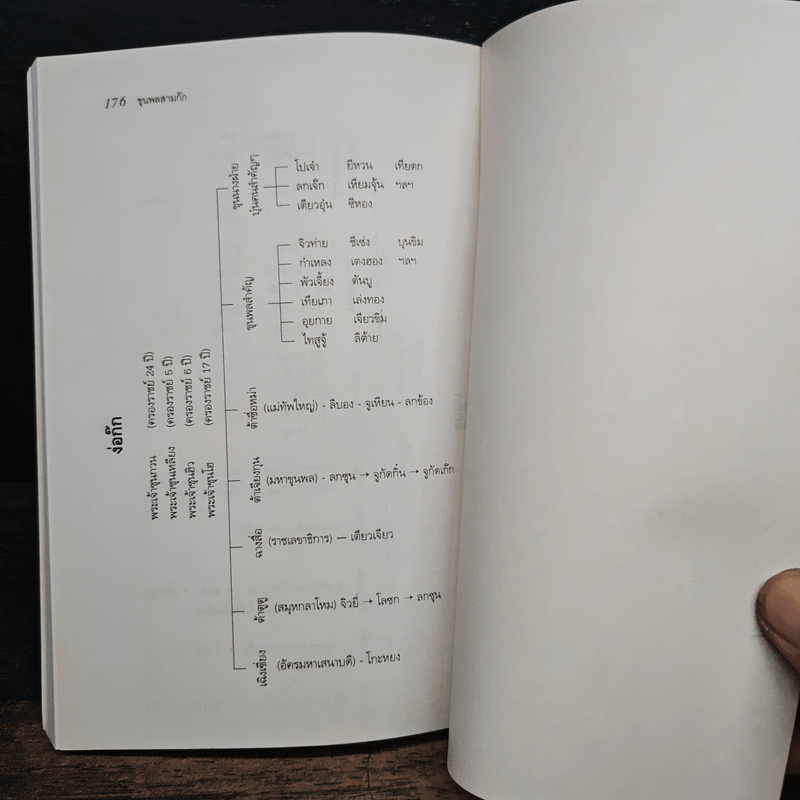 176 ขุนพลสามก๊ก
ง่อก๊ก
พระเจ้าซุนกวน (ครองราชย์ 24 ปี)
พระเจ้าซุนเหลียง (ครองราชย์ 5 ปี)
พระเจ้าซุนฮิว (ครองราชย์ 6 ปี)
พระเจ้าซุนโฮ (ครองราชย์ 17 ปี)
เฉิงเซี่ยง (อัครมหาเสนาบดี) - โกะหยง
ต้าตูตู (สมุหกลาโหม) จิวยี่ → โลซก → ลกซุน
ฉางสื่อ (ราชเลขาธิการ) — เตียวเจียว
ต้าเจียงกุน (มหาขุนพล) - ลกซุน → จูกัดกิ๋น → จูกัดเก๊ก
ต้าซื่อหม่า (แม่ทัพใหญ่) - ลิบอง - จูเหียน - ลกข้อง
ขุนพลสำคัญ
จิวท่าย ชีเซ่ง บุนขิม
กำเหลง เตงฮอง ฯลฯ
พัวเจี้ยง ตันบู
เทียเภา เล่งทอง
อุยกาย เจียวขิม
ไทสูจู้ ลิต้าย
ขุนนางฝ่าย
บุ๋นคนสำคัญๆ
โปเจ๋า ยีหวน เทียตก
ลกเจ๊ก เหียมจุ้น ฯลฯ
เตียวอุ๋น ซีหอง